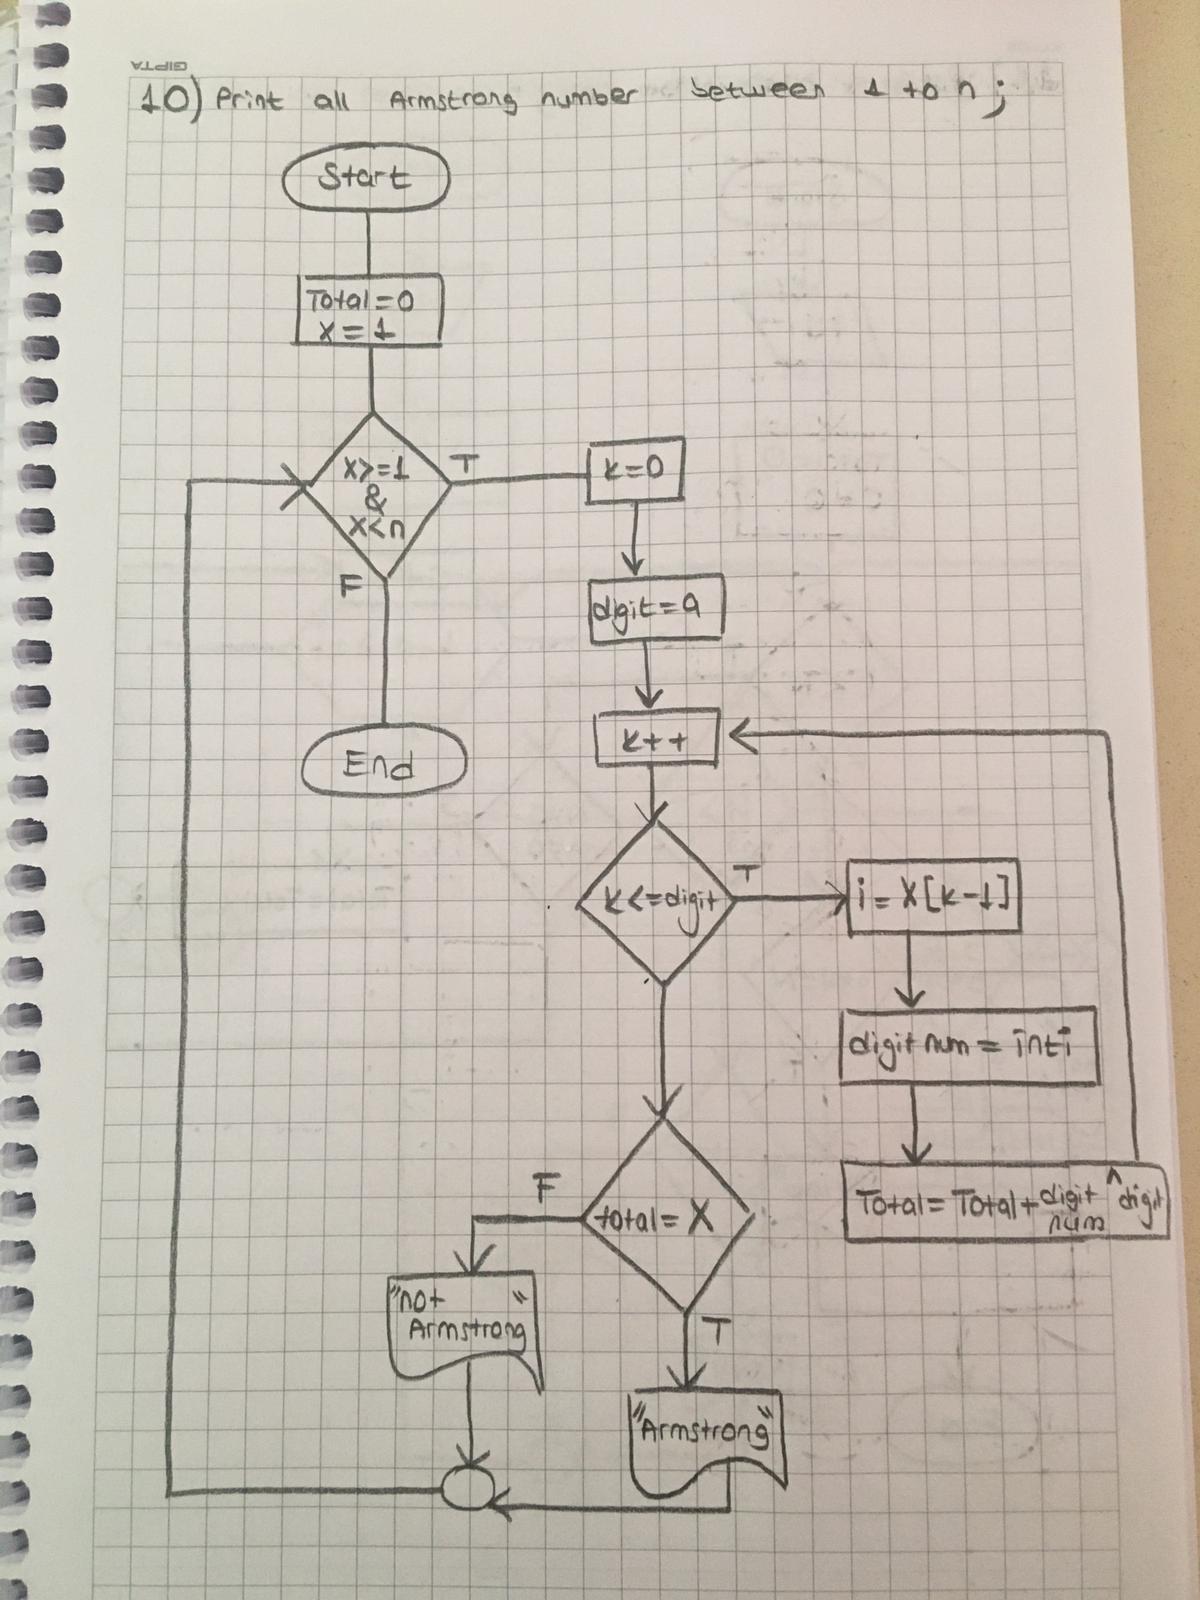 GIPTA
10) Print all Armstrong number between 1 to n;
Start
Total=0
x=1
x>=1
&
x<n
T
F
End
k=0
digit=9
k++
k<=digit
T
i=X[k-1]
digit num = int i
Total=Total+digit num ^ digit
total=X
F
T
"not
Armstrong"
"Armstrong"